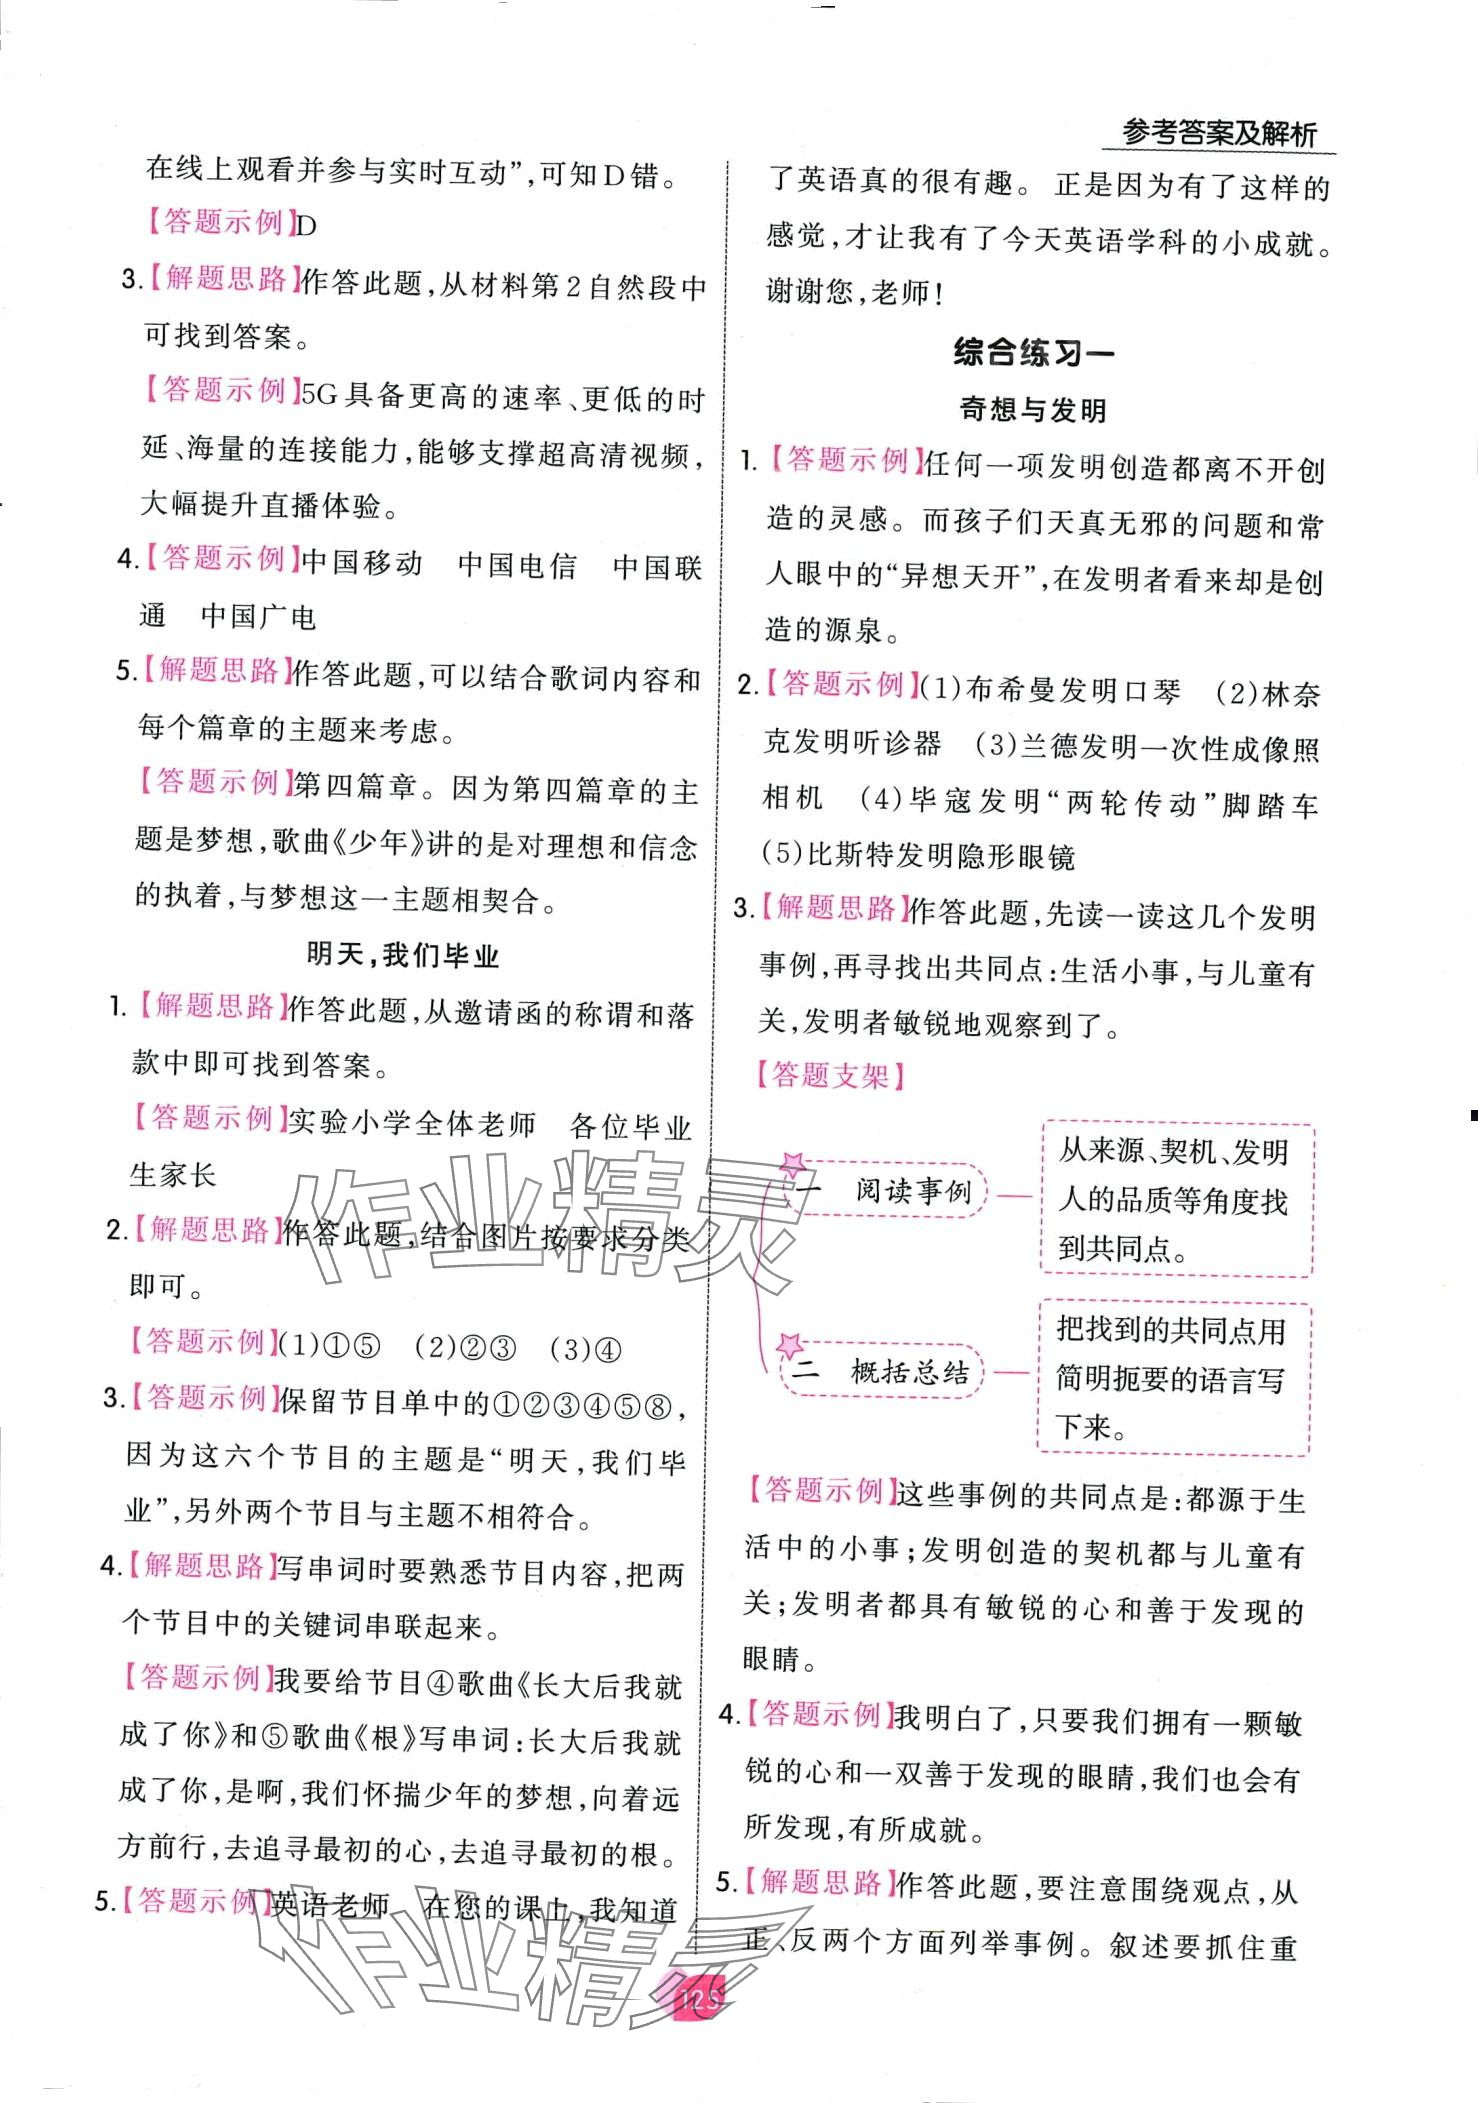 参考答案及解析
在线上观看并参与实时互动”，可知D错。
【答题示例】D
3.【解题思路】作答此题，从材料第2自然段中
可找到答案。
【答题示例】5G具备更高的速率、更低的时
延、海量的连接能力，能够支撑超高清视频，
大幅提升直播体验。
4.【答题示例】中国移动　中国电信　中国联
通　中国广电
5.【解题思路】作答此题，可以结合歌词内容和
每个篇章的主题来考虑。
【答题示例】第四篇章。因为第四篇章的主
题是梦想，歌曲《少年》讲的是对理想和信念
的执着，与梦想这一主题相契合。
明天，我们毕业
1.【解题思路】作答此题，从邀请函的称谓和落
款中即可找到答案。
【答题示例】实验小学全体老师　各位毕业
生家长
2.【解题思路】作答此题，结合图片按要求分类
即可。
【答题示例】(1)①⑤　(2)②③　(3)④
3.【答题示例】保留节目单中的①②③④⑤⑧，
因为这六个节目的主题是“明天，我们毕
业”，另外两个节目与主题不相符合。
4.【解题思路】写串词时要熟悉节目内容，把两
个节目中的关键词串联起来。
【答题示例】我要给节目④歌曲《长大后我就
成了你》和⑤歌曲《根》写串词：长大后我就
成了你，是啊，我们怀揣少年的梦想，向着远
方前行，去追寻最初的心，去追寻最初的根。
5.【答题示例】英语老师　在您的课上，我知道
了英语真的很有趣。正是因为有了这样的
感觉，才让我有了今天英语学科的小成就。
谢谢您，老师！
综合练习一
奇想与发明
1.【答题示例】任何一项发明创造都离不开创
造的灵感。而孩子们天真无邪的问题和常
人眼中的“异想天开”，在发明者看来却是创
造的源泉。
2.【答题示例】(1)布希曼发明口琴　(2)林奈
克发明听诊器　(3)兰德发明一次性成像照
相机　(4)毕寇发明“两轮传动”脚踏车
(5)比斯特发明隐形眼镜
3.【解题思路】作答此题，先读一读这几个发明
事例，再寻找出共同点：生活小事，与儿童有
关，发明者敏锐地观察到了。
【答题支架】
一　阅读事例
从来源、契机、发明
人的品质等角度找
到共同点。
二　概括总结
把找到的共同点用
简明扼要的语言写
下来。
【答题示例】这些事例的共同点是：都源于生
活中的小事；发明创造的契机都与儿童有
关；发明者都具有敏锐的心和善于发现的
眼睛。
4.【答题示例】我明白了，只要我们拥有一颗敏
锐的心和一双善于发现的眼睛，我们也会有
所发现，有所成就。
5.【解题思路】作答此题，要注意围绕观点，从
正、反两个方面列举事例。叙述要抓住重
125
作业精灵
作业精灵